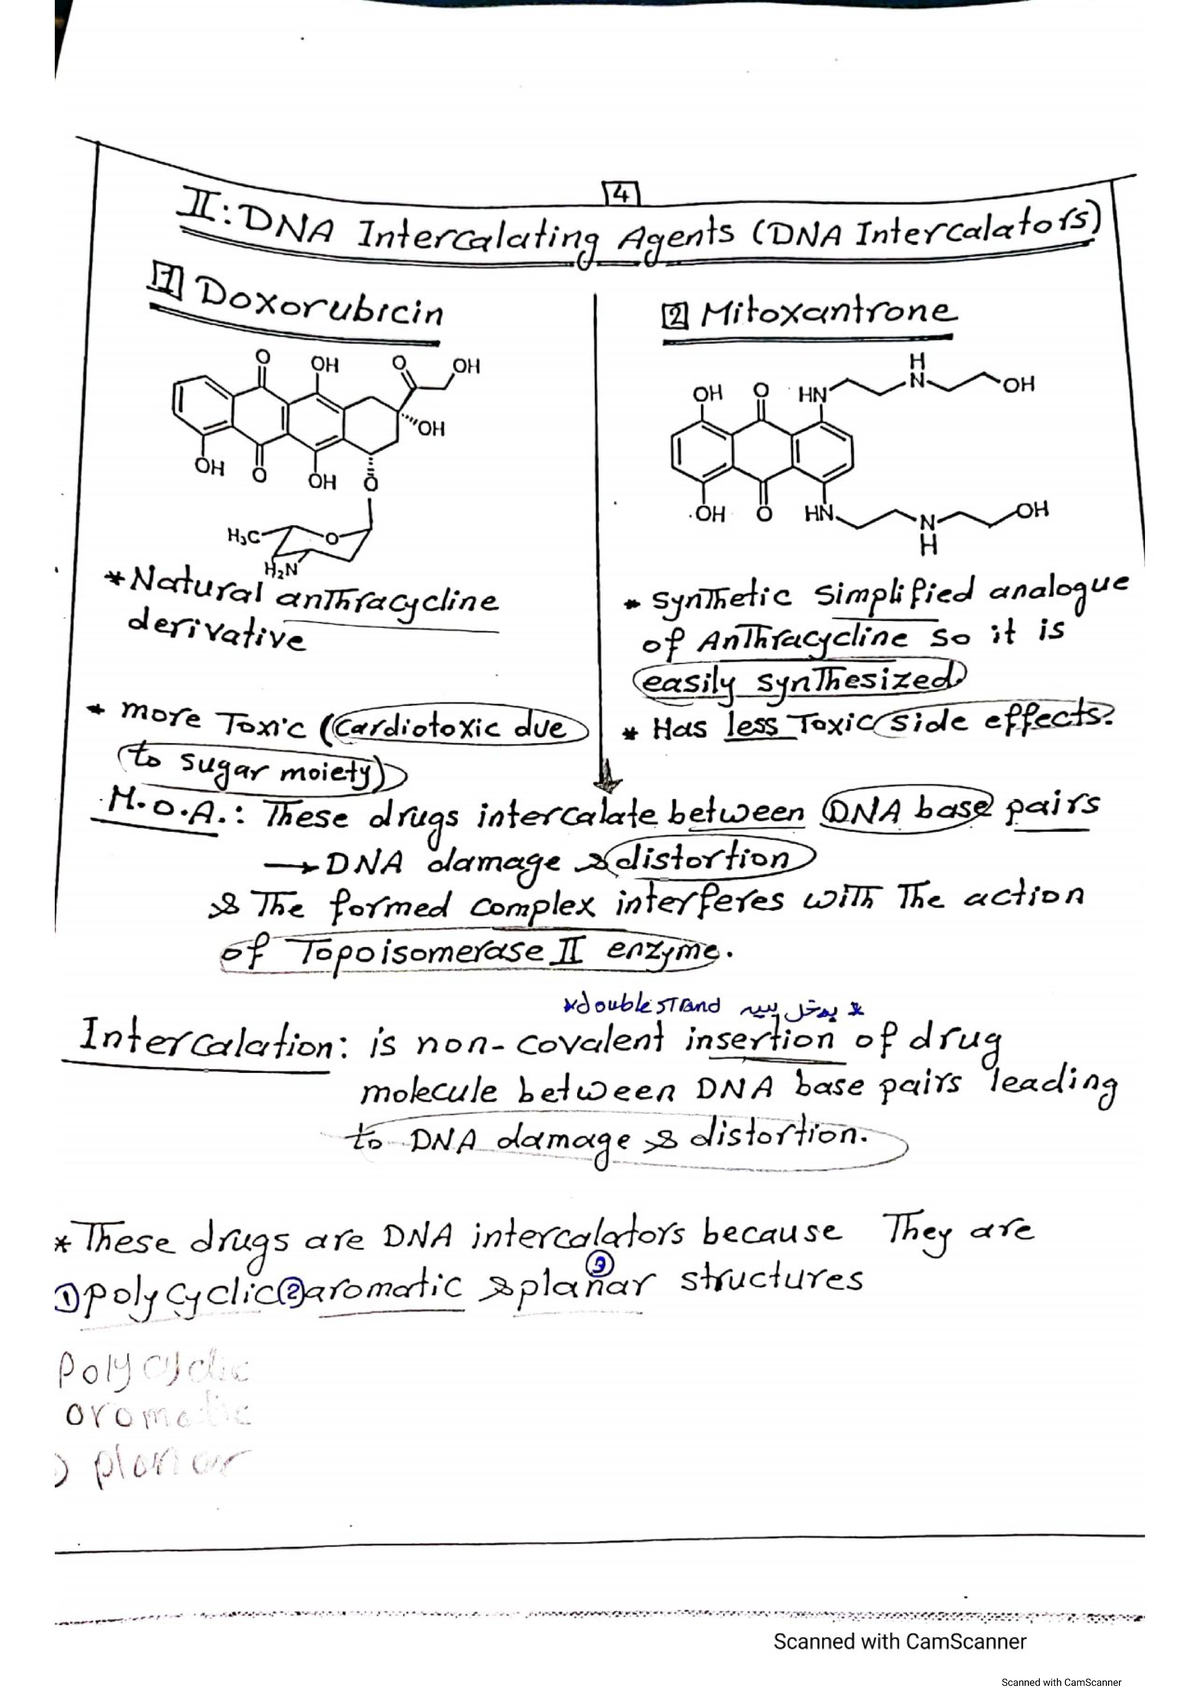 4
II: DNA Intercalating Agents (DNA Intercalators)
1 Doxorubicin
O OH O OH
OH
OH O OH O
H₃C O
H₂N
* Natural anthracycline
derivative
* more Toxic (Cardiotoxic due
to sugar moiety)
2 Mitoxantrone
OH O HN H N OH
OH O HN N H OH
* synthetic simplified analogue
of Anthracycline so it is
easily synthesized
* Has less Toxic side effects.
M.O.A.: These drugs intercalate between DNA base pairs
→ DNA damage & distortion
& The formed complex interferes with The action
of Topoisomerase II enzyme.
* double strand
Intercalation: is non-covalent insertion of drug
molecule between DNA base pairs leading
to DNA damage & distortion.
* These drugs are DNA intercalators because They are
① polycyclic ② aromatic & ③ planar structures
Polycyclic
aromatic
planar
Scanned with CamScanner
Scanned with CamScanner